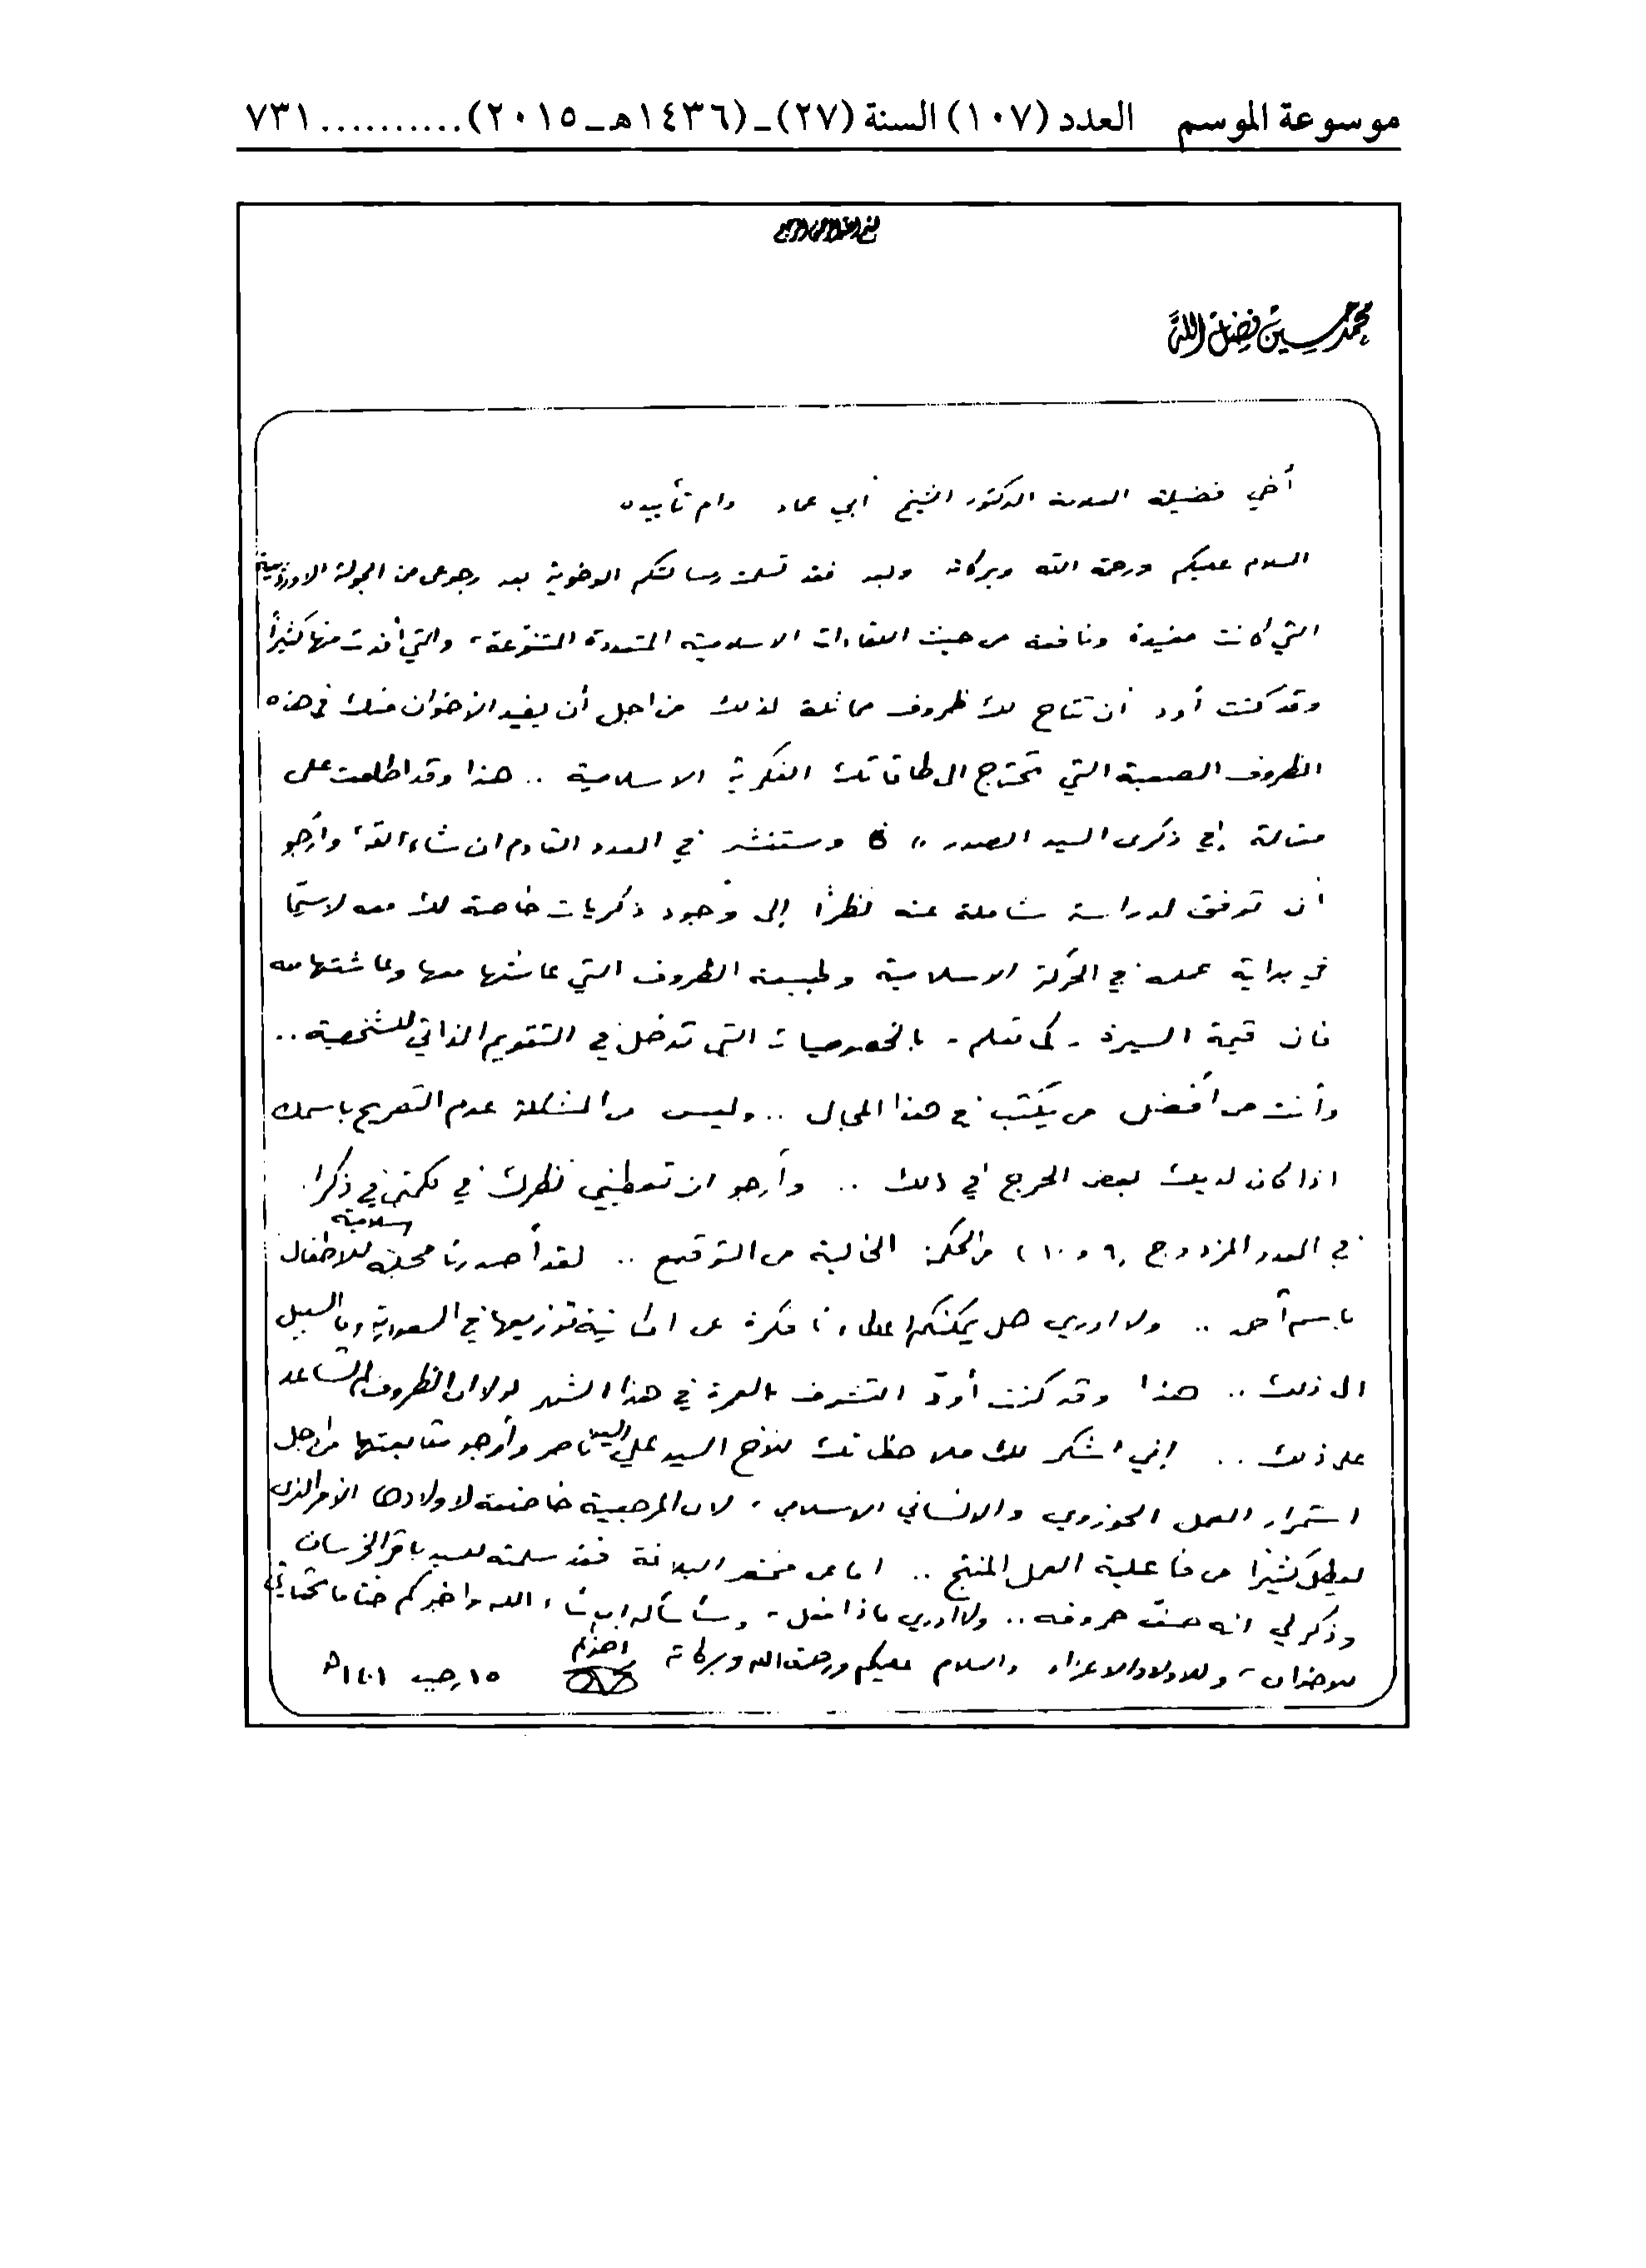 موسوعة الموسم العدد (١٠٧) السنة (٢٧) ـ (١٤٣٦هـ ـ ٢٠١٥) .......... ٧٣١
بسم الله الرحمن الرحيم
محمد حسين فضل الله
أخي فضيلة العلامة الدكتور الشيخ أبي عماد دام تأييده
السلام عليكم ورحمة الله وبركاته وبعد فقد تسلمت رسالتكم الاخوية بعد رجوعي من الجولة الاوروبية
التي كانت مفيدة ونافعة من حيث اللقاءات الاسلامية المتعددة المتنوّعة، والتي أفدت منها كثيراً
وقد كنت أود أن تتاح لك ظروف مماثلة لذلك من اجل أن يفيد الأخوان منك في هذه
الظروف الصعبة التي تحتاج الى طاقاتك الفكرية الاسلامية .. هذا وقد اطلعت على
مقالة في ذكرى السيد الصدر وستنشر في العدد القادم ان شاء الله، وأرجو
أن توفق لدراسة شاملة عنه نظراً إلى وجود ذكريات خاصة لك معه لاسيّما
في بداية عمله في الحركة الاسلامية وطبيعة الظروف التي عاشها معها وعاشتها معه
فان قيمة السيرة - كما تعلم - بالخصوصيات التي تدخل في التقويم الذاتي للشخصية ..
وأنت من أفضل من يكتب في هذا المجال .. وليس من المشكلة عدم التصريح باسمك
اذا كان لديك بعض الحرج في ذلك .. وأرجو ان تعطيني نظرك في كلمتي في ذكراه
في العدد المزدوج (٩ و ١٠) من الحكمة الخالية من التوقيع .. لقد أصدرنا مجلة اسلامية للاطفال
باسم أحمد .. ولا ادري هل يمكنكم اعطاءنا فكرة عن امكانية توزيعها في السعودية وما السبيل
الى ذلك .. هذا وقد كنت أودّ التشرف بالعمرة في هذا الشهر لولا ان الظروف لم تساعد
على ذلك .. إني اشكر لك ملاحظاتك للأخ السيد علي السيد ناصر وأرجو متابعتها من اجل
استمرار العمل الحوزوي والانساني الاسلامي، لان المرجعية خاضعة لاولادها الأمر الذي
يعطل كثيراً من فاعلية العمل المنتج .. اما عن مختصر البلاغة فقد سلمته للسيد باقر الخرسان
وذكر لي انه صف حروفه .. ولا ادري ماذا فعل، وسأسأله ان شاء الله واخبركم ختاما تحياتي
للاخوان، وللاولاد الاعزاء والسلام عليكم ورحمة الله وبركاته اخوكم
١٥ رجب ١٤٠١ هـ